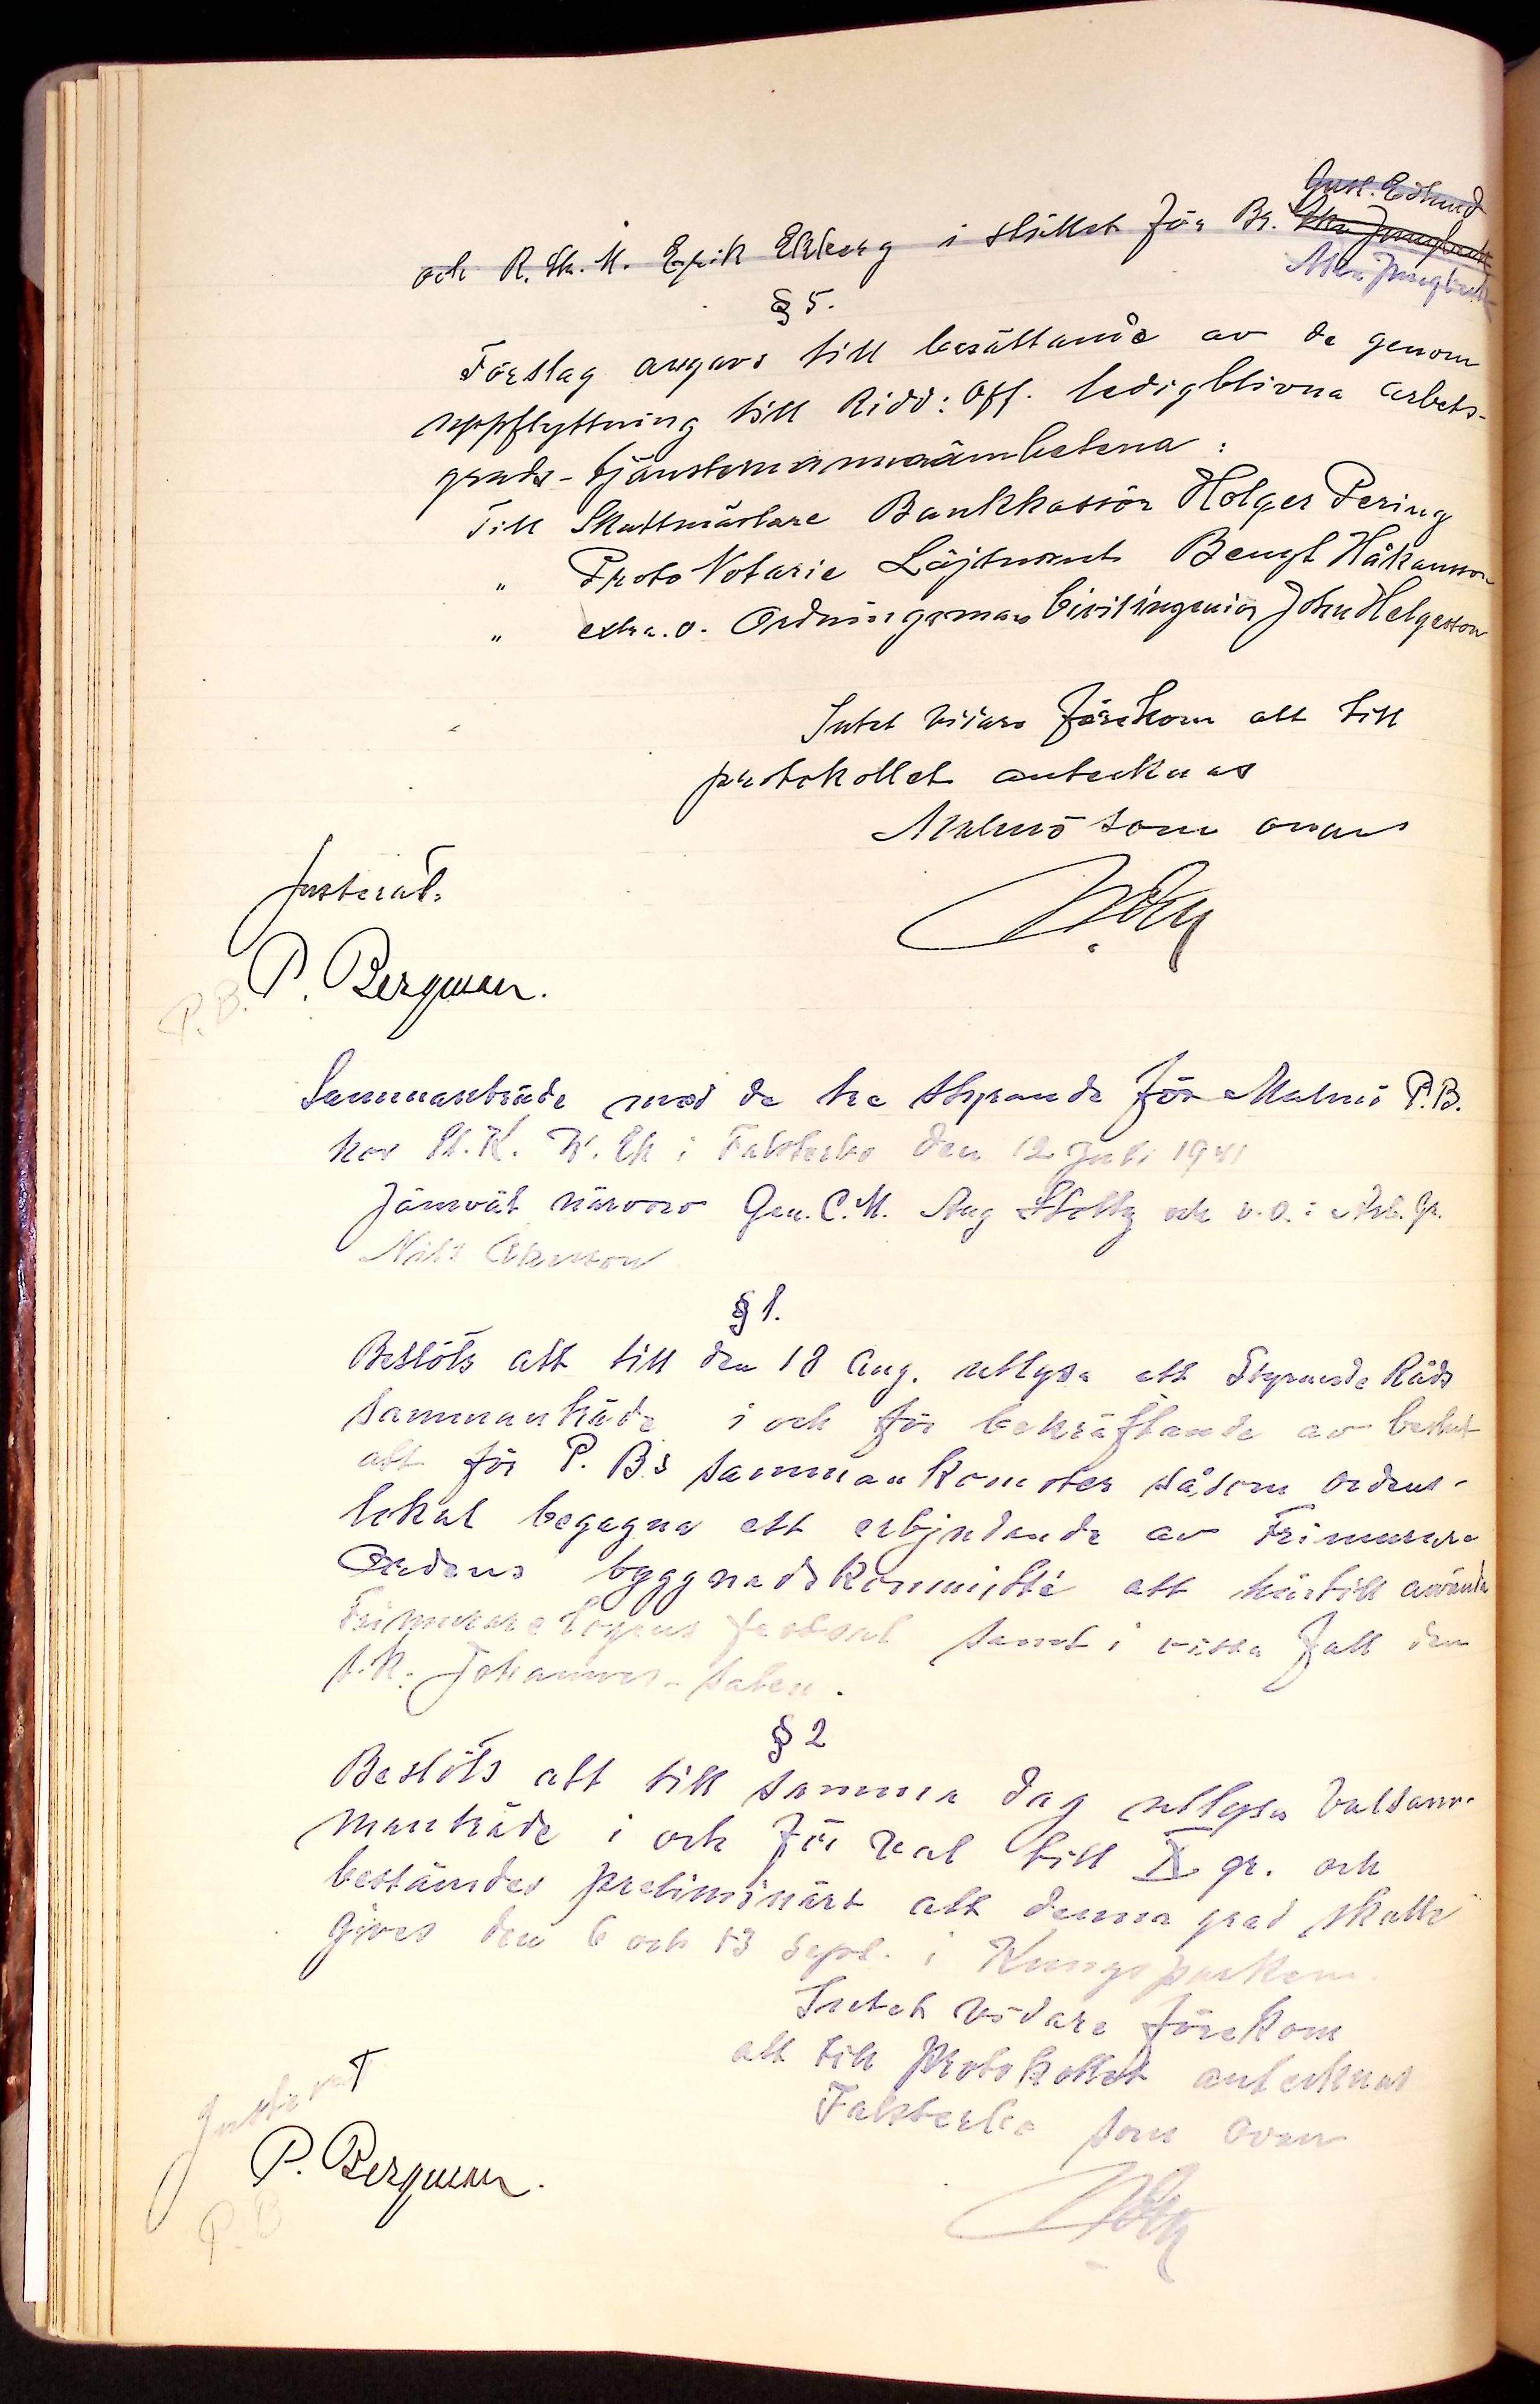 Gust. Edlund
och R. Sk. M. Erik Ekberg i stället för Br.
Alex Jungbeck
§ 5.
Förslag avgavs till besättande av de genom
uppflyttning till Ridd: Off. ledigblivna arbets-
grads-tjänstemannaämbetena:
Till Skattmästare Bankkassör Holger Pering
" Proto Notarie Löjtnant Bengt Håkansson
" extra. o. Ordningsman Civilingenior John Helgesson
Intet vidare förekom att till
protokollet antecknas
Malmö som ovan
Justerat.
P. Bergman.
P.B.
Sammanträde med de tre styrande för Malmö P.B.
hos St. K. W. Ek i Falsterbo den 12 Juli 1941
Jämväl närvoro Gen. C. M. Aug Stoltz och v. o. i Arb. Gr.
Nils Åkesson
§ 1.
Beslöts att till den 18 Aug. utlysa ett Styrande Råds
sammanträde i och för bekräftande av beslut
att för P. B:s sammankomster såsom ordens-
lokal begagna ett erbjudande av Frimurare
Ordens byggnadskommitté att härtill använda
Frimurarelogens festsal samt i vissa fall den
s.k. Johannes-salen.
§ 2
Beslöts att till samma dag utlysa valsam-
manträde i och för val till X gr. och
bestämdes preliminärt att denna grad skulle
gives den 6 och 13 Sept. i Kungsparken.
Intet vidare förekom
att till protokollet antecknas
Falsterbo som ovan
Justerat
P. Bergman.
P. B